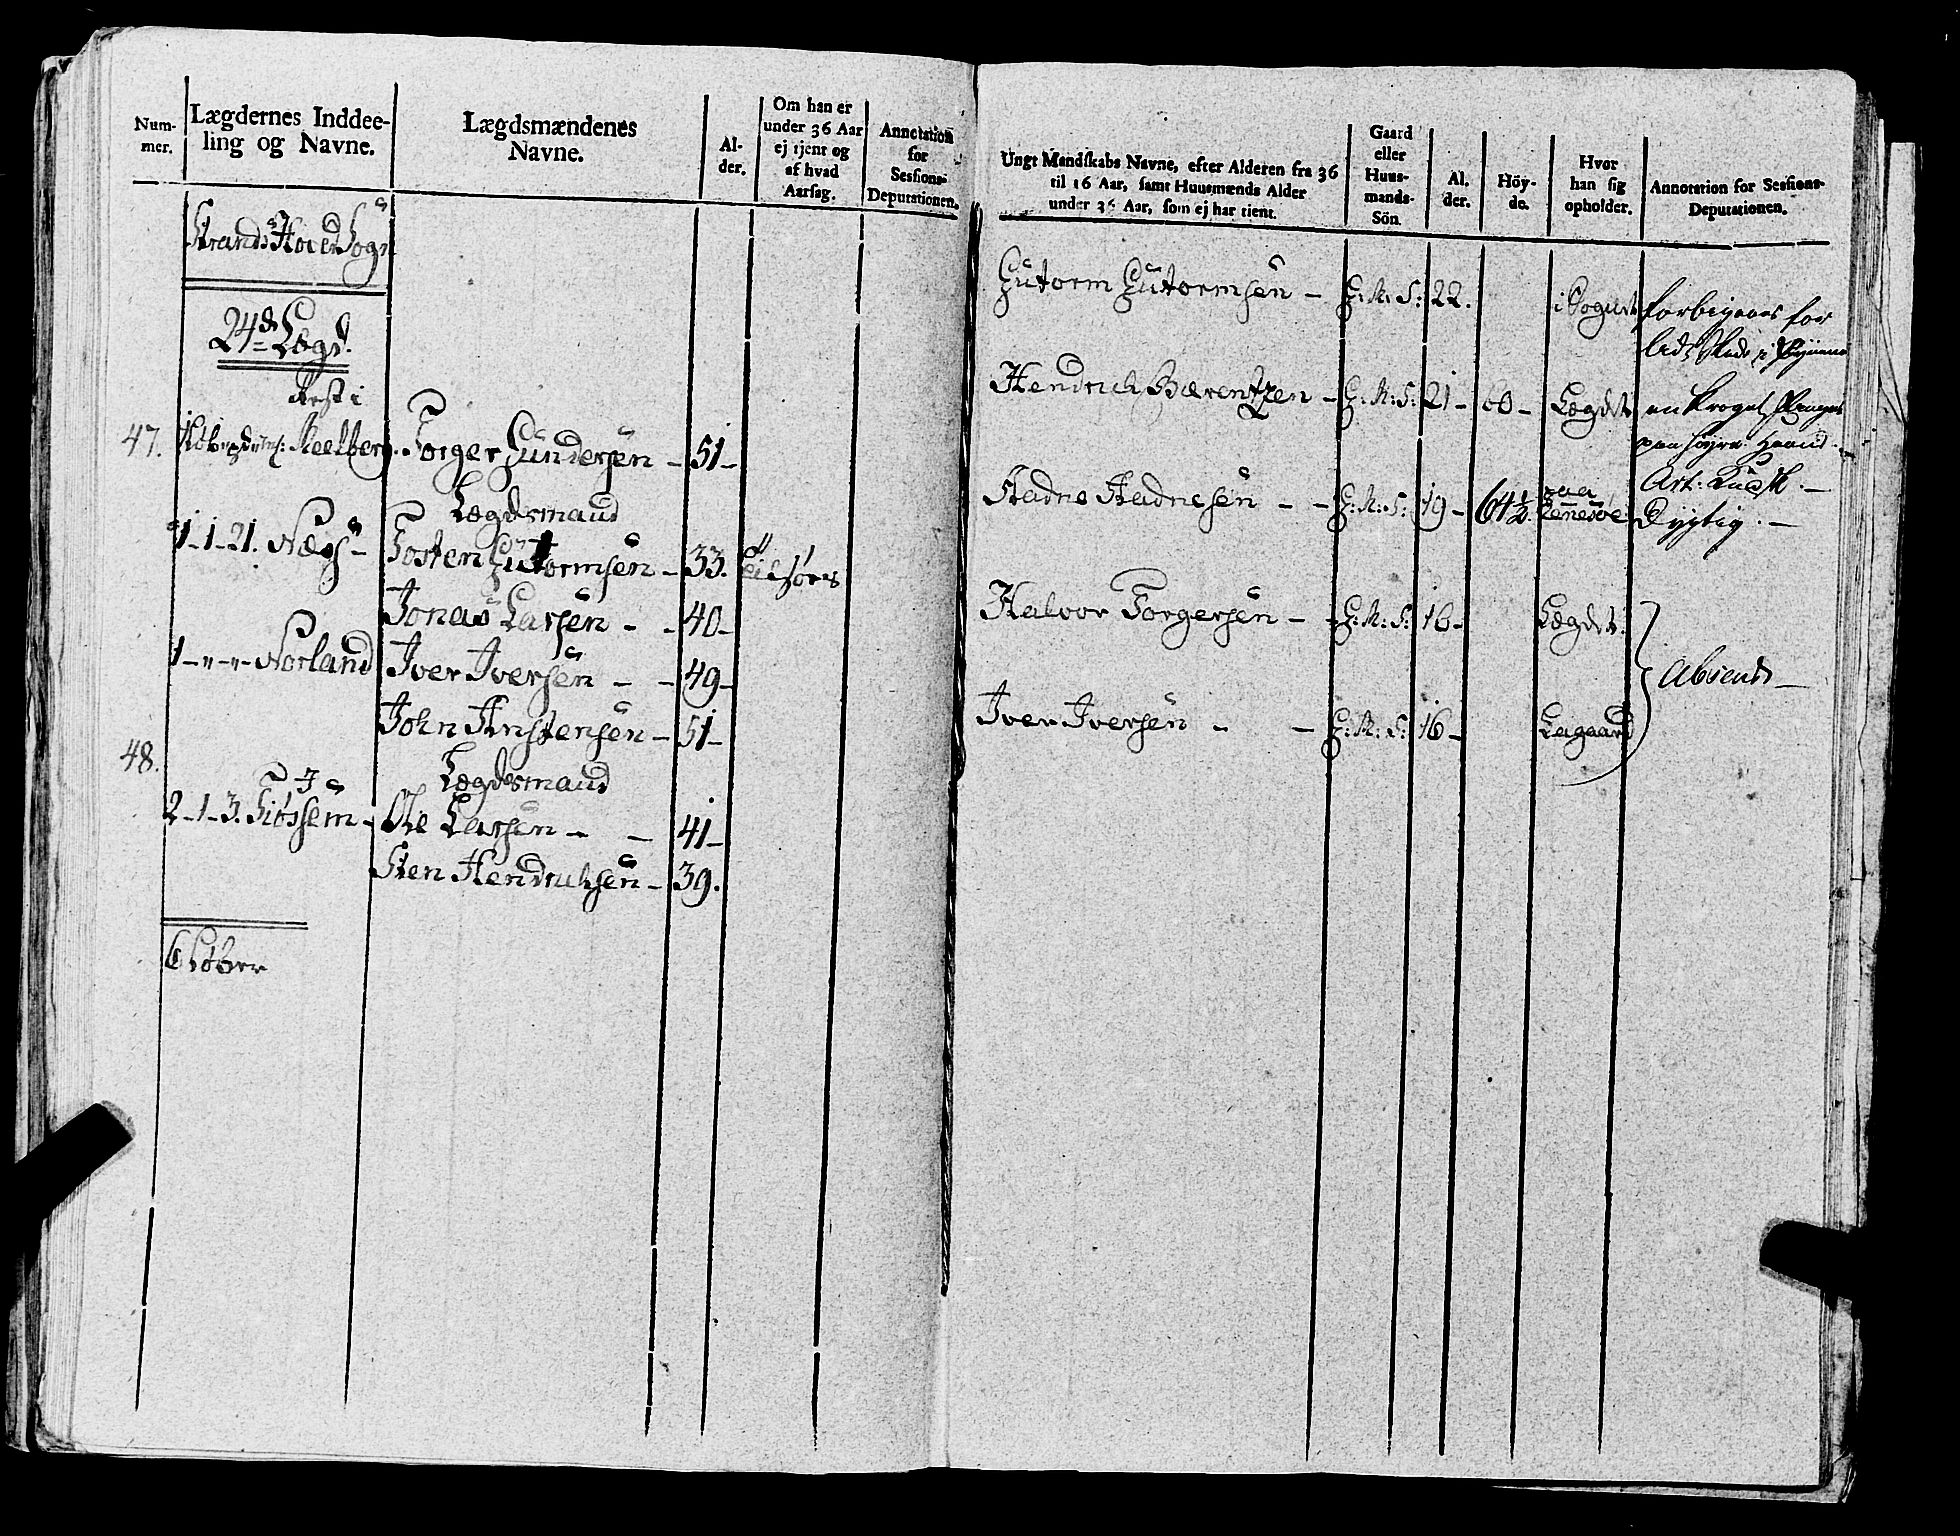 Num-
mer.
Lægdernes Inddee-
ling og Navne.
Lægdsmændenes
Navne.
Al-
der.
Om han er
under 36 Aar
ej tjent og
af hvad
Aarsag.
Annotation
for
Sessions-
Deputationen.
Strands Hoved Sogn
24de Lægd.
Rest i
47.
Meelberg - Torger Gundersen - 51 -
Lægdsmand
1-1-21. Næs - Tosten Gutormsen - 33.
Jonas Larsen - - 40 -
1 - " - " - Norland Iver Iversen - - 49 -
John Aristensen - 51 -
48.
Lægdsmand
2-1-3. Tiøssem - Ole Larsen - - 41 -
Sten Hendrichsen - 39.
Ungt Mandskabs Navne, efter Alderen fra 36
til 16 Aar, samt Huusmænds Alder
under 36 Aar, som ej har tient.
Gaard
eller
Huus-
mands-
Sön.
Al-
der.
Höy-
de.
Hvor
han sig
opholder.
Annotation for Sessions-
Deputationen.
Gutorm Gutormsen - G: M: S: 22. i Sognet forbigaaes for
Hendrich Bærentzen - G: M: S: 21 - 60 - Lægdet en kroget Finger
paa høyre Haand -
Art: Kudsk. -
Aadne Aadnesen - - G: M: S: 19 - 64 1/2. paa
Dygtig. -
Halvor Torgersen - - G: M: S: 16 - Lægdet.
Absent -
Iver Iversen - - G: M: S: 16 - Lagaard